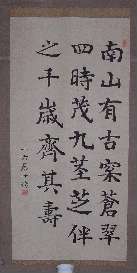 南山有古寀蒼翠
四時茂九茎芝伴
之千歳齊其壽